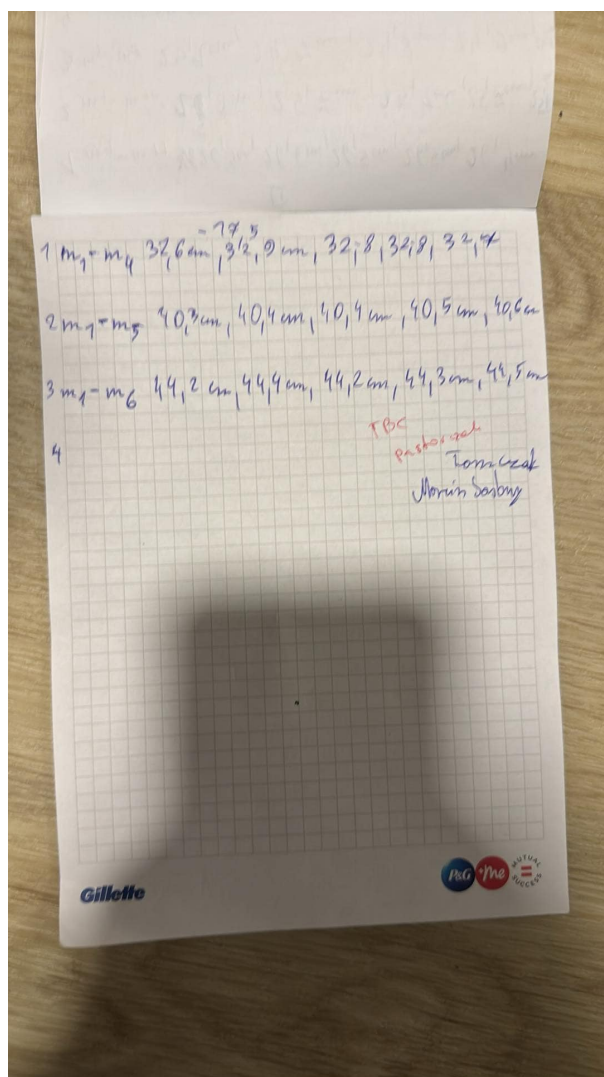 - 17,5
1 m₁-m₄ 32,6 cm, 32,9 cm, 32,8, 32,8, 32,7
2 m₁-m₅ 40,3 cm, 40,4 cm, 40,4 cm, 40,5 cm, 40,6 cm
3 m₁-m₆ 44,2 cm, 44,4 cm, 44,2 cm, 44,3 cm, 44,5 cm
TBC
4
Tomczak
Marcin
Gillette
P&G +me MUTUAL SUCCESS